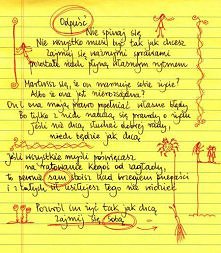 Odpuść
Nie spinaj się
Nie wszystko musi być tak jak chcesz
zajmij się ważnymi sprawami
pozostałe niech płyną własnym rytmem
Martwisz się, że on marnuje sobie życie?
Albo że ona jest nierozsądna?
On i ona mają prawo popełniać własne błędy
Bo tylko z nich nauczą się prawdy o życiu
Jeśli nie chcą słuchać dobrej rady,
niech będzie jak chcą
Jeśli wszystkie myśli poświęcasz
na ratowanie kogoś od zagłady,
to pewnie sam stoisz nad brzegiem przepaści
i z całych sił usiłujesz tego nie widzieć
Pozwól im żyć tak jak chcą
zajmij się sobą